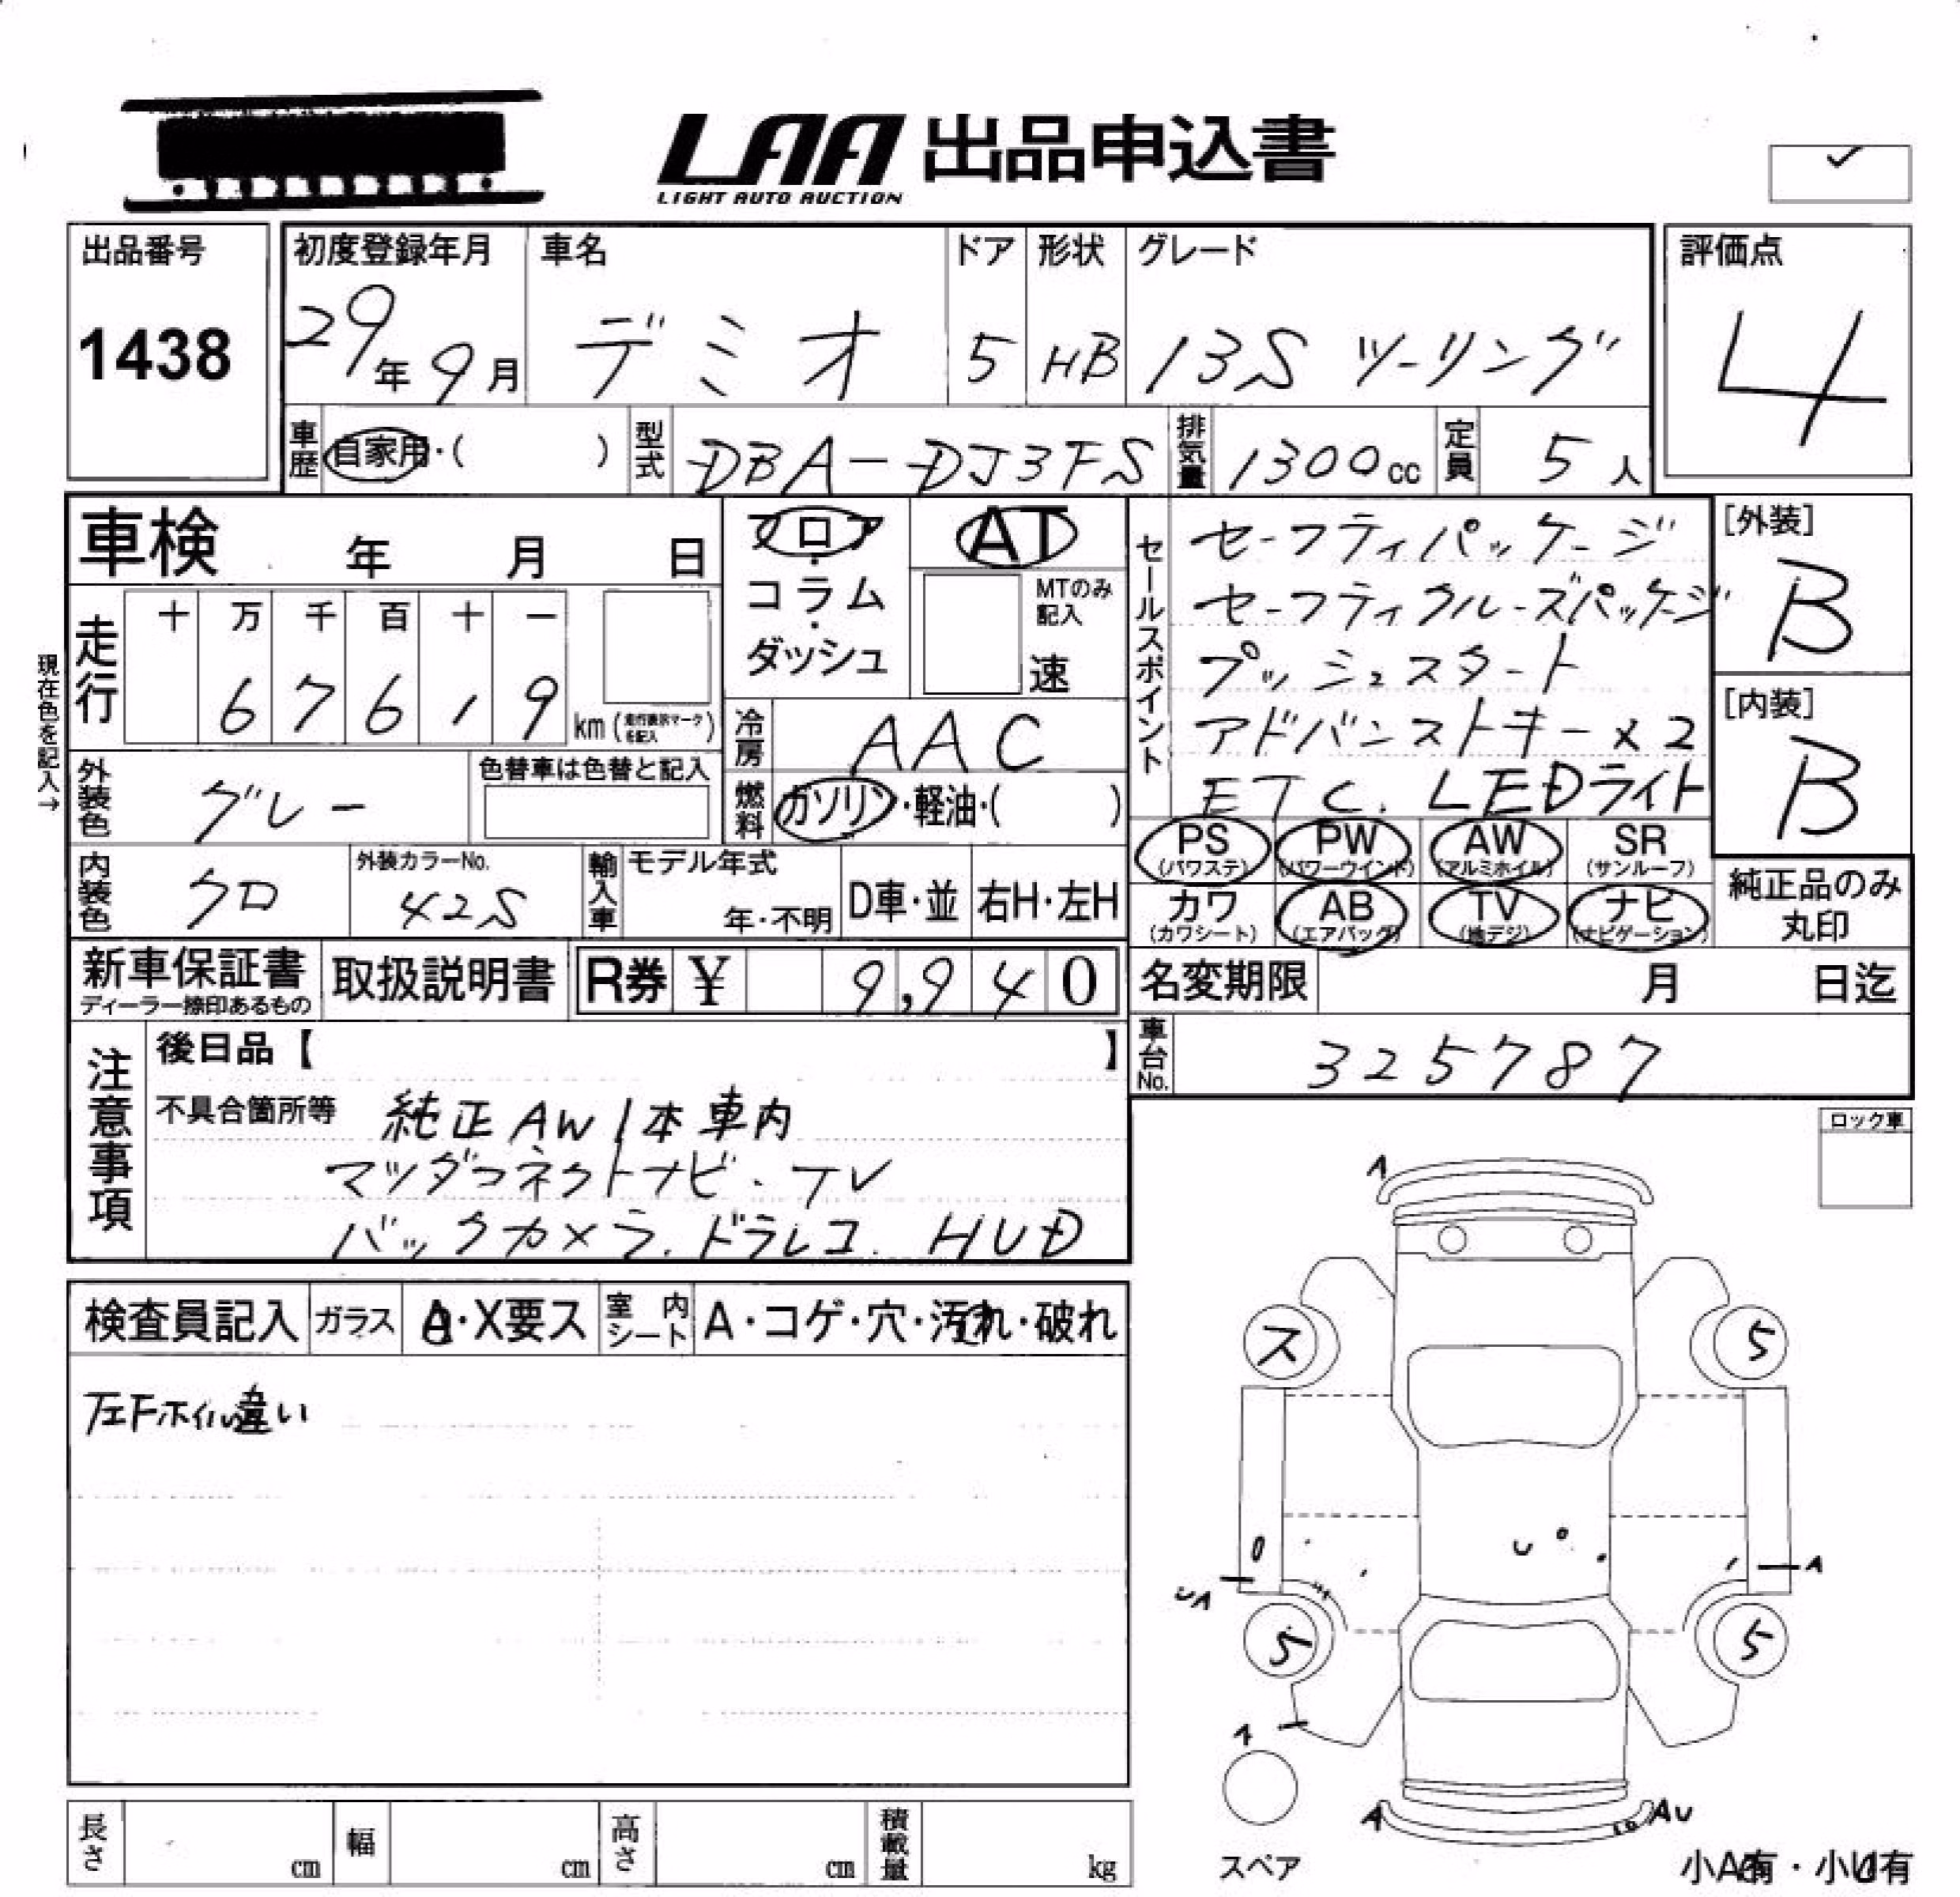 LAA 出品申込書
LIGHT AUTO AUCTION
出品番号
1438
初度登録年月
29年 9月
車名
デミオ
ドア
5
形状
HB
グレード
13S ツーリング
評価点
4
車歴 自家用・( )
型式 DBA-DJ3FS
排気量 1300cc
定員 5人
車検 年 月 日
フロア・コラム・ダッシュ
AT
MTのみ記入
速
セールスポイント
セーフティパッケージ
セーフティクルーズパッケージ
プッシュスタート
アドバンストキー×2
ETC. LEDライト
[外装]
B
[内装]
B
現在色を記入→
走行
十 万 千 百 十 一
6 7 6 1 9 km (走行表示マークを記入)
冷房 AAC
外装色 グレー
色替車は色替と記入
燃料 ガソリン・軽油・( )
PS (パワステ)
PW (パワーウインド)
AW (アルミホイル)
SR (サンルーフ)
カワ (カワシート)
AB (エアバッグ)
TV (地デジ)
ナビ (ナビゲーション)
純正品のみ丸印
内装色 クロ
外装カラーNo.
42S
輸入車
モデル年式
年・不明
D車・並
右H・左H
新車保証書
ディーラー捺印あるもの
取扱説明書
R券 ¥ 9,940
名変期限 月 日迄
車台No. 325787
注意事項
後日品【 】
不具合箇所等 純正AW1本車内
マツダコネクトナビ・TV
バックカメラ.ドラレコ. HUD
ロック車
検査員記入
ガラス
A・X要ス
室内シート
A・コゲ・穴・汚れ・破れ
左Fホイル違い
A
ス
5
U
A
UA
5
5
A
A
AU
スペア
長さ cm
幅 cm
高さ cm
積載量 kg
小A有・小U有